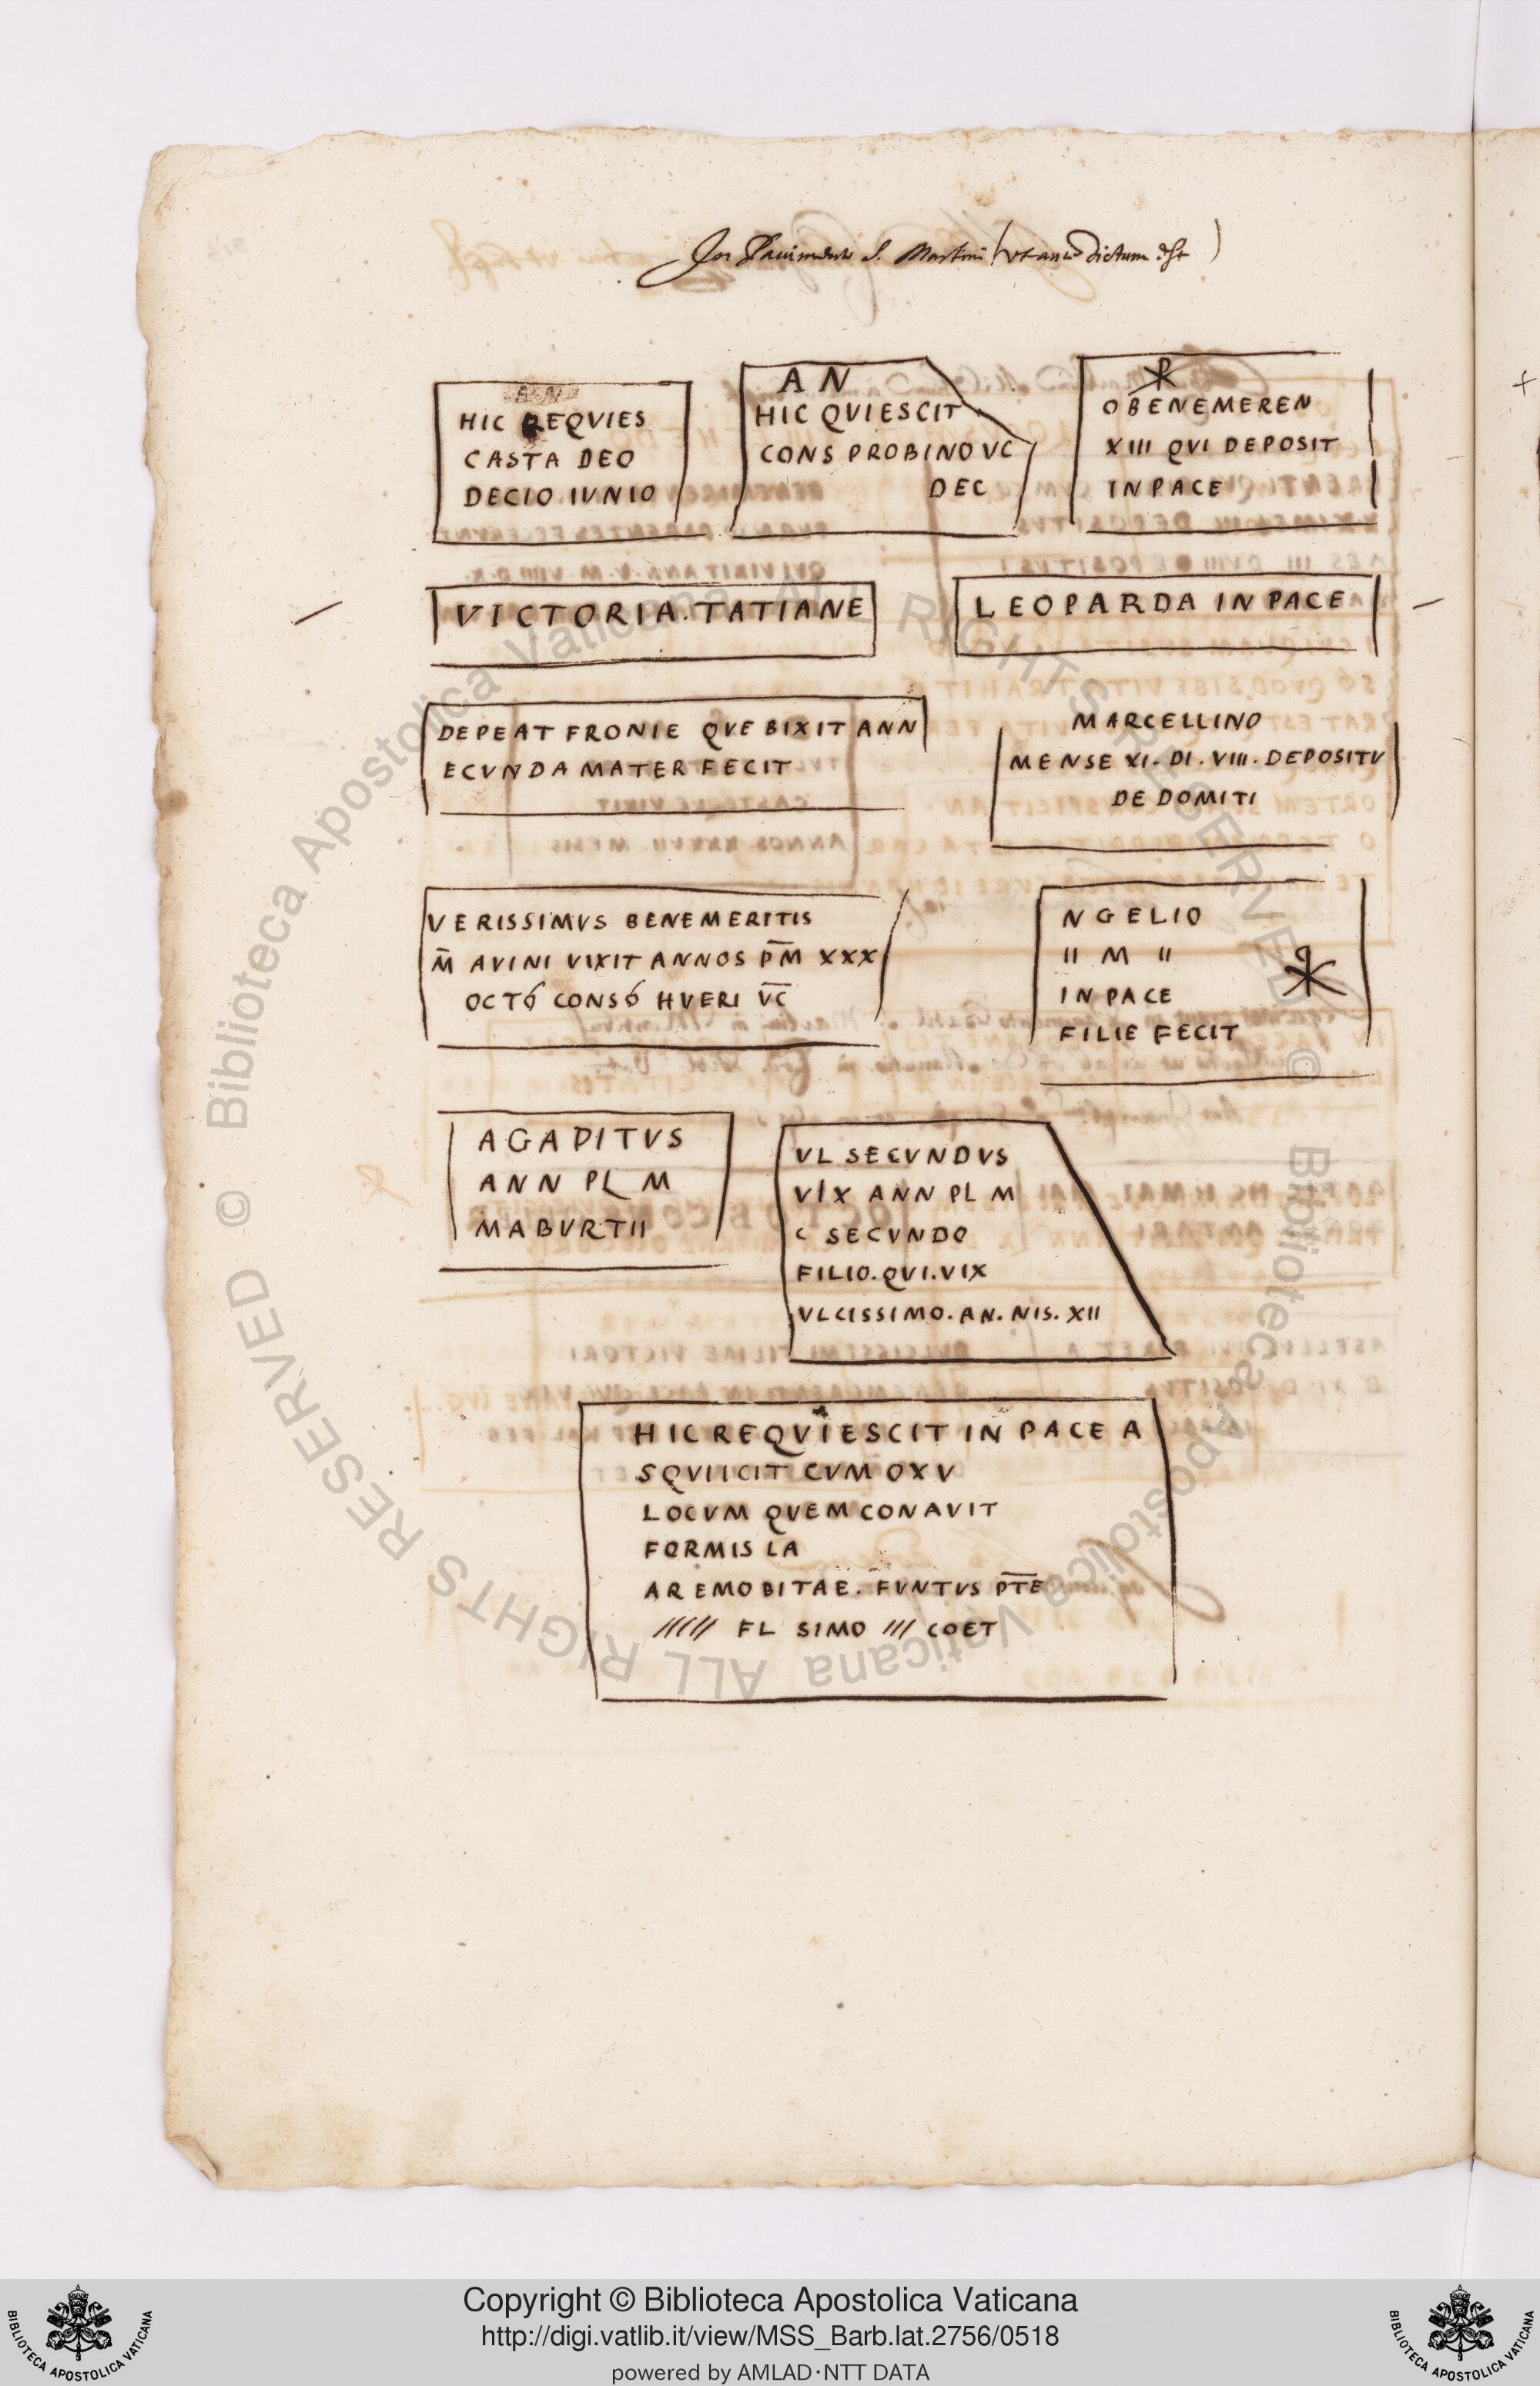 In Pavimento S. Martini (ut antea dictum est)
HIC REQVIES
CASTA DEO
DECIO IVNIO
AN
HIC QVIESCIT
CONS PROBINO VC
DEC
O BENEMEREN
XIII QVI DEPOSIT
IN PACE
VICTORIA.TATIANE
LEOPARDA IN PACE
DEPEAT FRONIE QVE BIXIT ANN
ECVNDA MATER FECIT
MARCELLINO
MENSE XI. DI. VIII. DEPOSITV
DE DOMITI
VERISSIMVS BENEMERITIS
M̄ AVINI VIXIT ANNOS P̄M̄ XXX
OCTó CONSó HVERI V̄C̄
NGELIO
II M II
IN PACE
FILIE FECIT
AGAPITVS
ANN PL M
MABVRTII
VL SECVNDVS
VIX ANN PL M
C SECVNDO
FILIO.QVI.VIX
VLCISSIMO.AN.NIS.XII
HIC REQVIESCIT IN PACE A
SQVIICIT CVM OXV
LOCVM QVEM CONAVIT
FORMIS LA
AREMOBITAE. FVNTVS P̄T̄E
///// FL SIMO /// COET
Copyright © Biblioteca Apostolica Vaticana
http://digi.vatlib.it/view/MSS_Barb.lat.2756/0518
powered by AMLAD·NTT DATA
BIBLIOTECA APOSTOLICA VATICANA
BIBLIOTECA APOSTOLICA VATICANA
© Biblioteca Apostolica Vaticana ALL RIGHTS RESERVED © Biblioteca Apostolica Vaticana ALL RIGHTS RESERVED